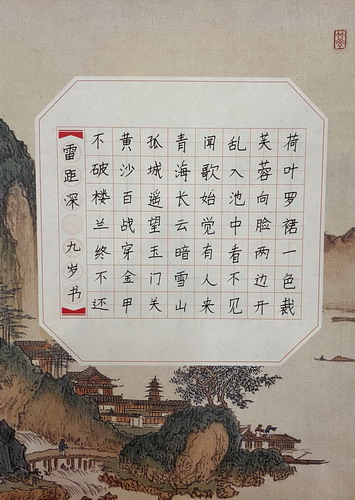 荷叶罗裙一色裁
芙蓉向脸两边开
乱入池中看不见
闻歌始觉有人来
青海长云暗雪山
孤城遥望玉门关
黄沙百战穿金甲
不破楼兰终不还
雷距深 九岁书